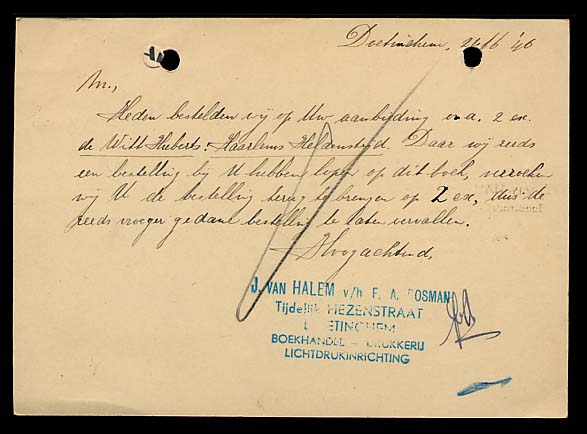 Doetinchem, 21/6 '46
M.,
Heden bestelden wij op Uw aanbieding o.a. 2 ex.
de Witt Huberts: Haarlems Heldenstrijd. Daar wij reeds
een bestelling bij U hebben lopen op dit boek, verzoeken
wij U de bestelling terug te brengen op 2 ex, dus de
reeds vroeger gedane bestelling te laten vervallen.
Hoogachtend,
J. VAN HALEM v/h F. A. ROSMAN
Tijdelijk HEZENSTRAAT
DOETINCHEM
BOEKHANDEL - DRUKKERIJ
LICHTDRUKINRICHTING